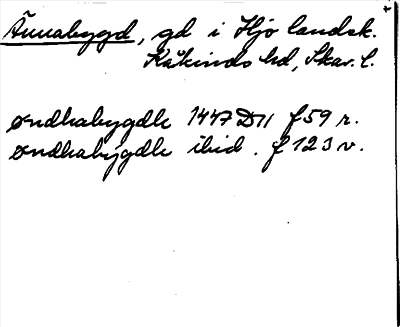 Ännabygd, gd i Hjo landsk.
Kåkinds hd, Skar. l.
øndhabygdh 1447 D 11 f 59 r.
øndhabygdh ibid. f 123 v.